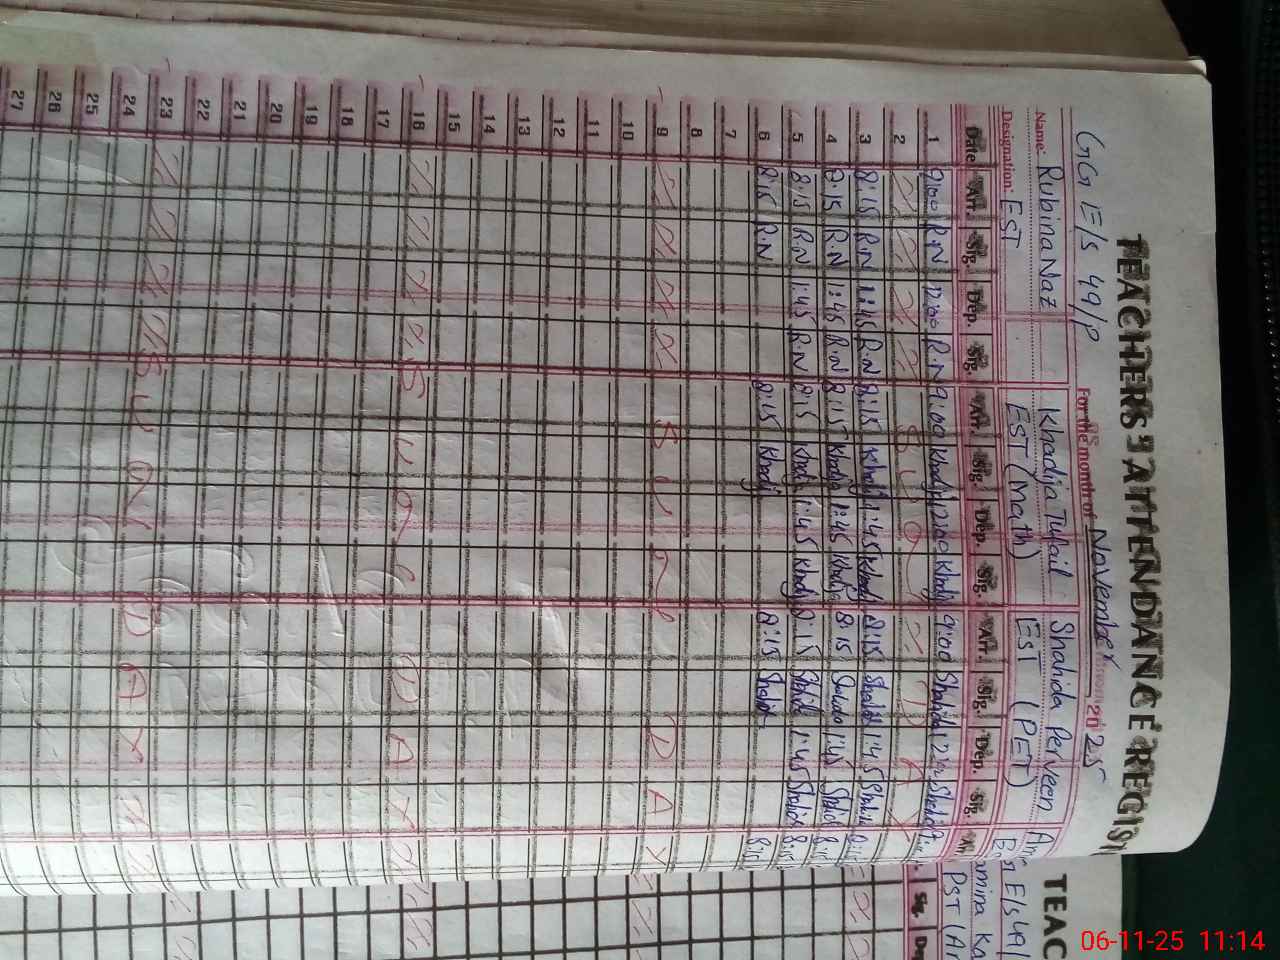 TEACHERS' ATTENDANCE REGIST
GG E/s 49/P For the month of November 2025
Name: Rubina Naz Khadija Tufail Shahida Perveen
Designation: EST EST (Math) EST (PET)
Date Arr. Sig. Dep. Sig. Arr. Sig. Dep. Sig. Arr. Sig. Dep. Sig. Arr.
1 9:00 R.N 12:00 R.N 9:00 Khadij 12:00 Khadij 9:00 Shahid
2
3 8:15 R.N 1:45 R.N 8:15 Khadij 1:45 Khadij 8:15 Shahid 1:45
4 8:15 R.N 1:45 R.N 8:15 Khadij 1:45 Khadij 8:15 1:45 Shahid 8:15
5 8:15 R.N 1:45 R.N 8:15 Khadij 1:45 Khadij 8:15 Shahid 1:45 Shahid 8:15
6 8:15 R.N 8:15 Khadij 8:15 Shahid 8:15
7
8
9 SUN DAY
10
11
12
13
14
15
16 SUN DAY
17
18
19
20
21
22
23 SUN DAY
24
25
26
27
TEAC
E/s 49/
amina Ka
PST (Ar
Sig. De
06-11-25 11:14